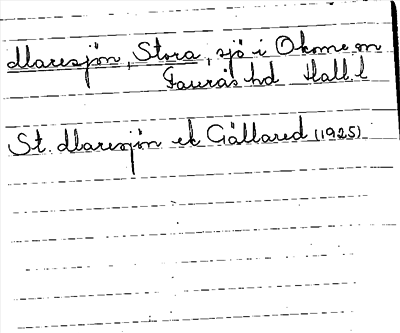 Maresjön, Stora, sjö i Okome sn
Faurås hd Hall. l
St. Maresjön ek Gällared (1925)